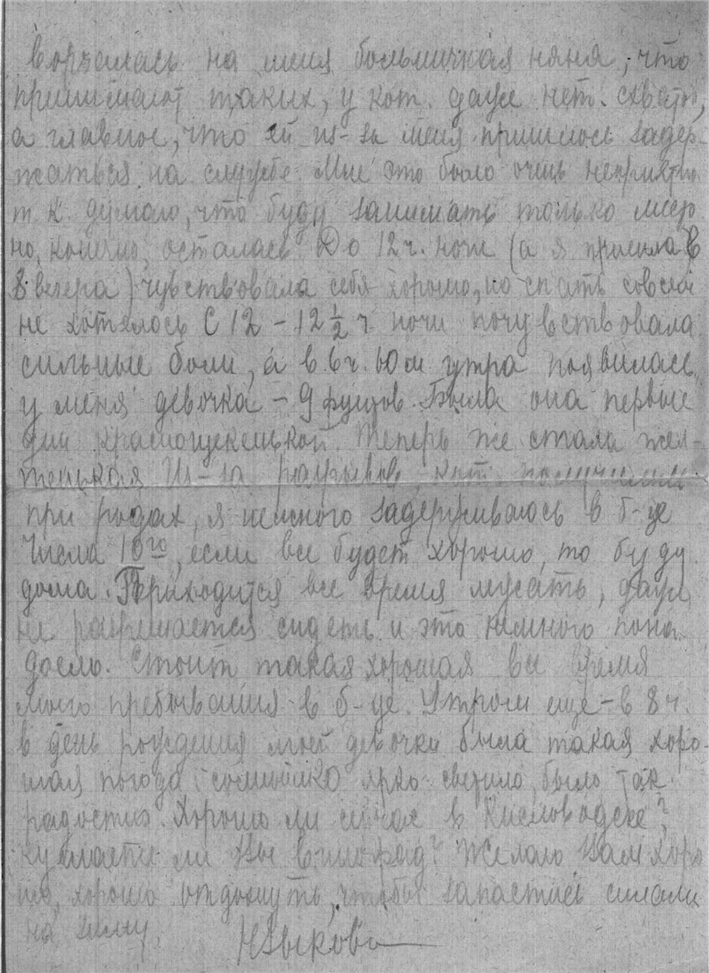 ворчалась на меня больничная няня, что
принимают таких, у кот. даже нет схваток,
а главное, что ей из-за меня пришлось задер-
жаться на службе. Мне это было очень неприятно
т.к. думаю, что буду занимать только место
но, конечно, осталась. До 12 ч. ночи (а я пришла в
8 вечера) чувствовала себя хорошо, но спать совсем
не хотелось С 12 – 12 1/2 ч ночи почувствовала
сильные боли, а в 6 ч. 10 м утра появилась
у меня девочка – 9 фунтов. Была она первые
дни краснощекенькой. Теперь же стала жел-
тенькая Из-за разрывов, кот. получились
при родах, я немного задерживаюсь в б-це
Числа 10го, если все будет хорошо, то буду
дома. Приходится все время лежать, даже
не разрешается сидеть и это немного пона-
доело. Стоит такая хорошая все время
моего пребывания в б-це. Утром еще – в 8 ч.
в день рождения моей девочки была такая хоро-
шая погода: солнышко ярко светило, было так
радостно. Хорошо ли сейчас в Кисловодске?
Кушаете ли Вы виноград? Желаю Вам хоро-
шо, хорошо отдохнуть, чтобы запастись силами
на зиму.
НЗыкова